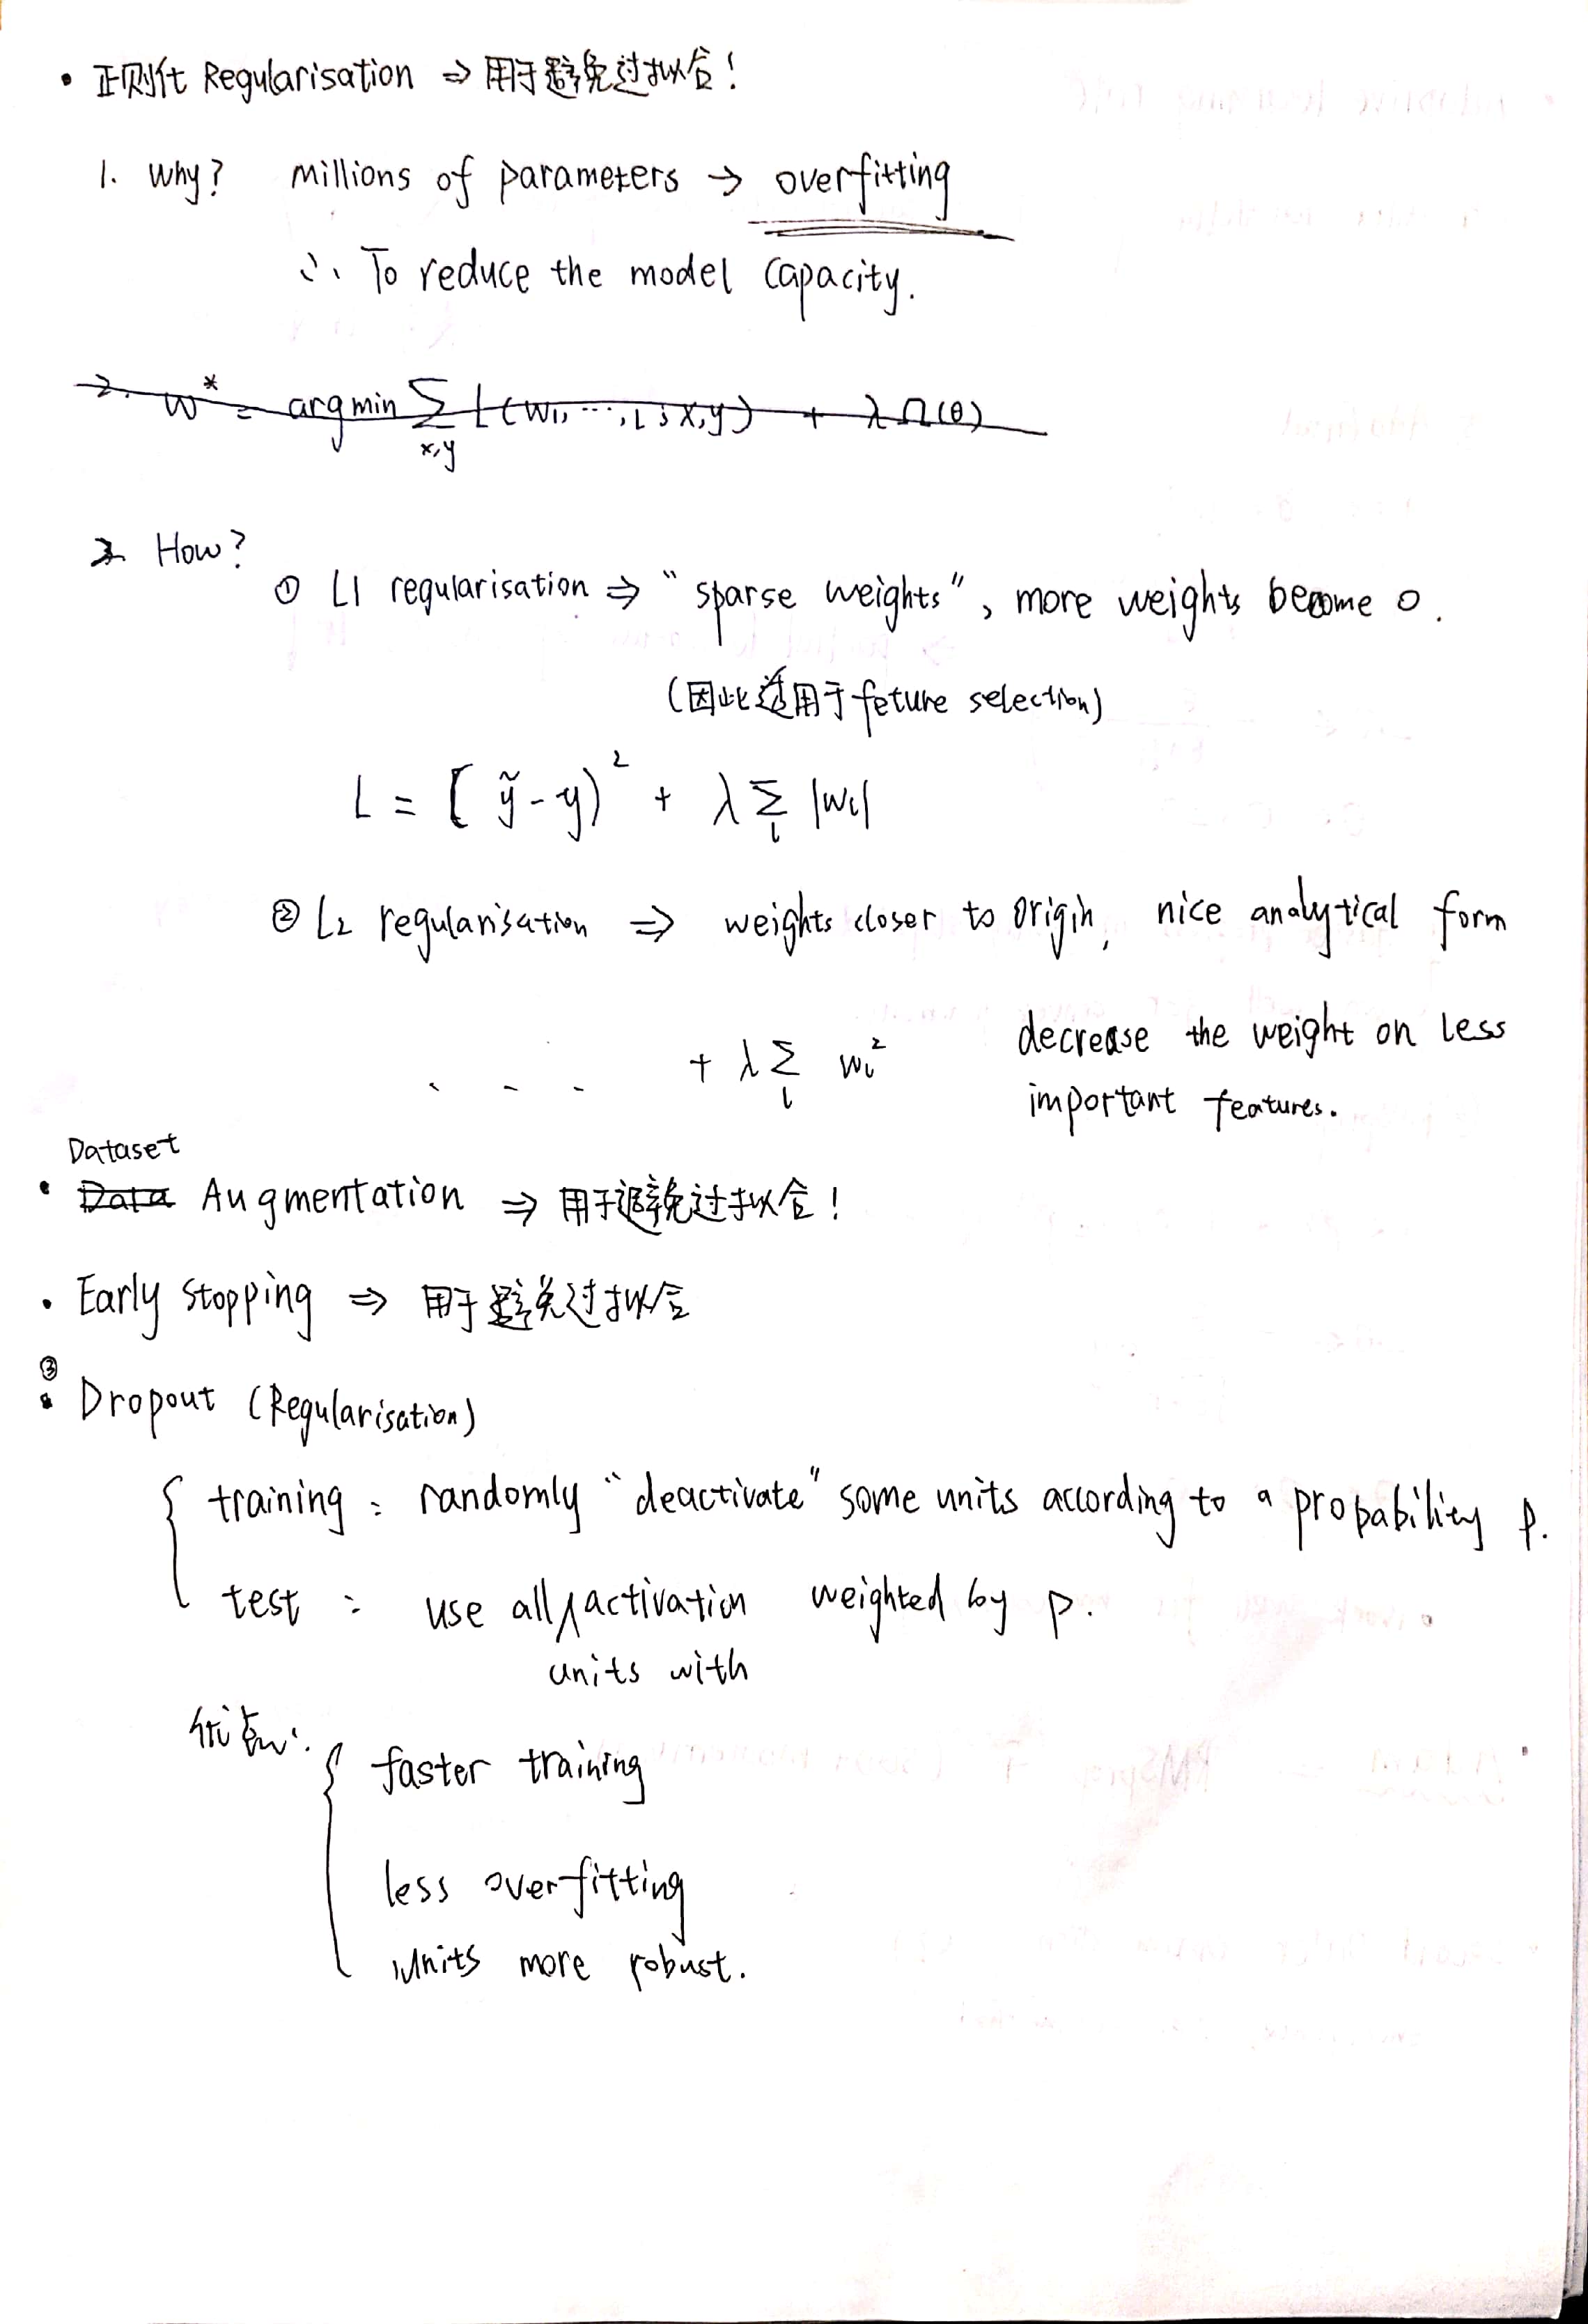 • 正则化 Regularisation ⇒ 用于避免过拟合!
1. Why? millions of parameters → overfitting
∴ To reduce the model capacity.
2. W* = argmin Σ L(W1, ..., L ; x,y) + λΩ(θ)
x,y
2. How?
① L1 regularisation ⇒ "sparse weights", more weights become 0.
(因此适用于feture selection)
L = [ ỹ - y)² + λ Σi |wi|
② L2 regularisation ⇒ weights closer to origin, nice analytical form
. . . + λ Σi wi² decrease the weight on less
important features.
Dataset
• Data Augmentation ⇒ 用于避免过拟合!
• Early stopping ⇒ 用于避免过拟合
③
• Dropout (Regularisation)
{ training: randomly "deactivate" some units according to a probability p.
test: use all ∧ activation weighted by p.
units with
优点:
{ faster training
less overfitting
units more robust.